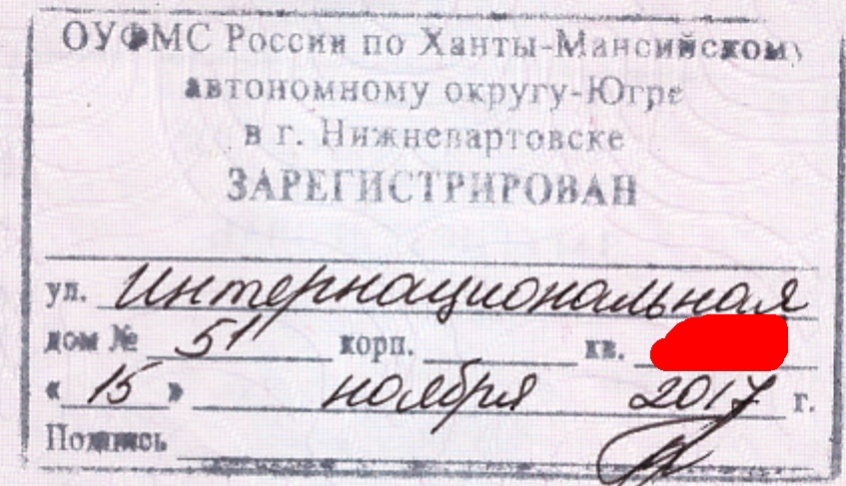 ОУФМС России по Ханты-Мансийскому
автономному округу-Югре
в г. Нижневартовске
ЗАРЕГИСТРИРОВАН
ул. Интернациональная
дом № 51 корп. кв.
« 15 » ноября 2017 г.
Подпись